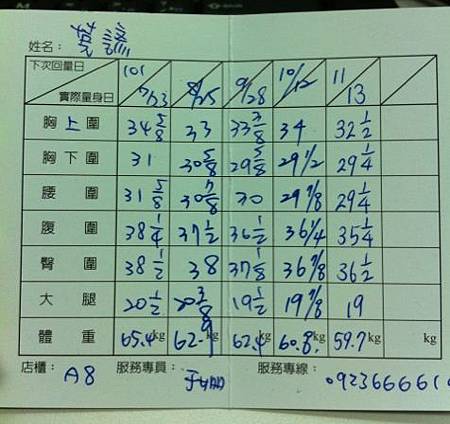 姓名：
下次回量日 101
實際量身日 7/23 8/25 9/28 10/12 11/13
胸上圍 34 5/8 33 33 3/8 34 32 1/2
胸下圍 31 30 5/8 29 5/8 29 1/2 29 1/4
腰圍 31 5/8 30 7/8 30 29 7/8 29 1/4
腹圍 38 1/4 37 1/2 36 1/2 36 1/4 35 1/4
臀圍 38 1/2 38 37 1/8 36 7/8 36 1/2
大腿 20 1/2 20 3/8 19 1/2 19 7/8 19
體重 65.4kg 62.9kg 62.4kg 60.8kg 59.7kg kg
店櫃： A8 服務專員： 服務專線： 0923666610